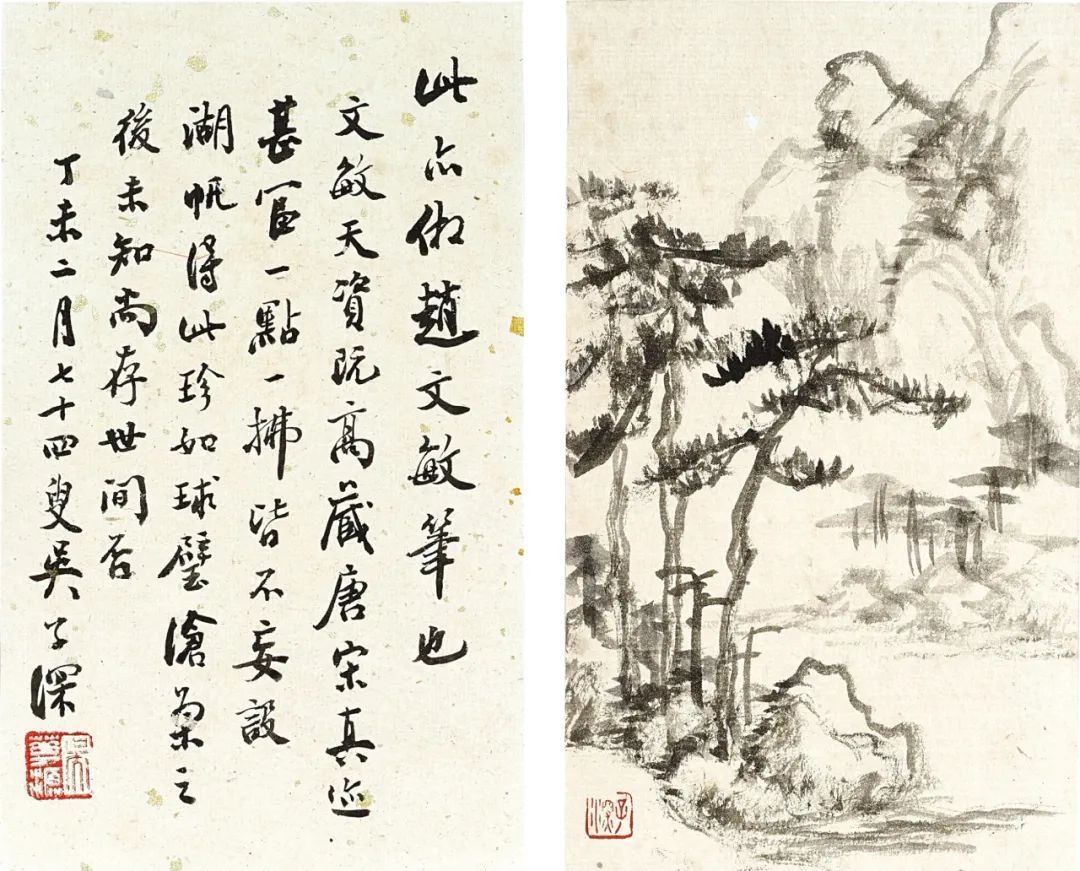 此亦倣趙文敏筆也
文敏天資既高藏唐宋真迹
甚富一點一拂皆不妄設
湖帆得此珍如球璧滄桑之
後未知尚存世間否
丁未二月七十四叟吳子深
吳華源
子深